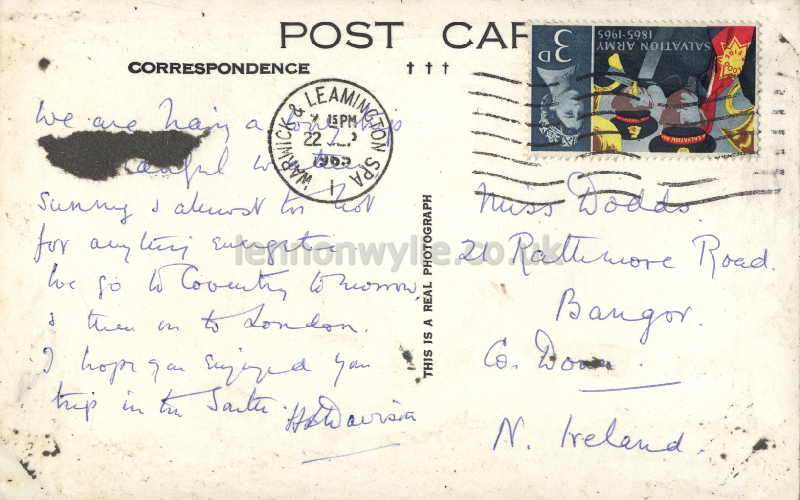 POST CAR
CORRESPONDENCE
† † †
3D
SALVATION ARMY
1865-1965
WARWICK & LEAMINGTON SPA
15 PM
22
1965
1
We are having a
sunny & almost too hot
for anything energetic.
We go to Coventry tomorrow,
& then on to London.
I hope you enjoyed you
trip in the South.
THIS IS A REAL PHOTOGRAPH
Miss Dodds.
21 Rathmore Road.
Bangor.
Co. Down.
N. Ireland.
lennonwylie.co.uk